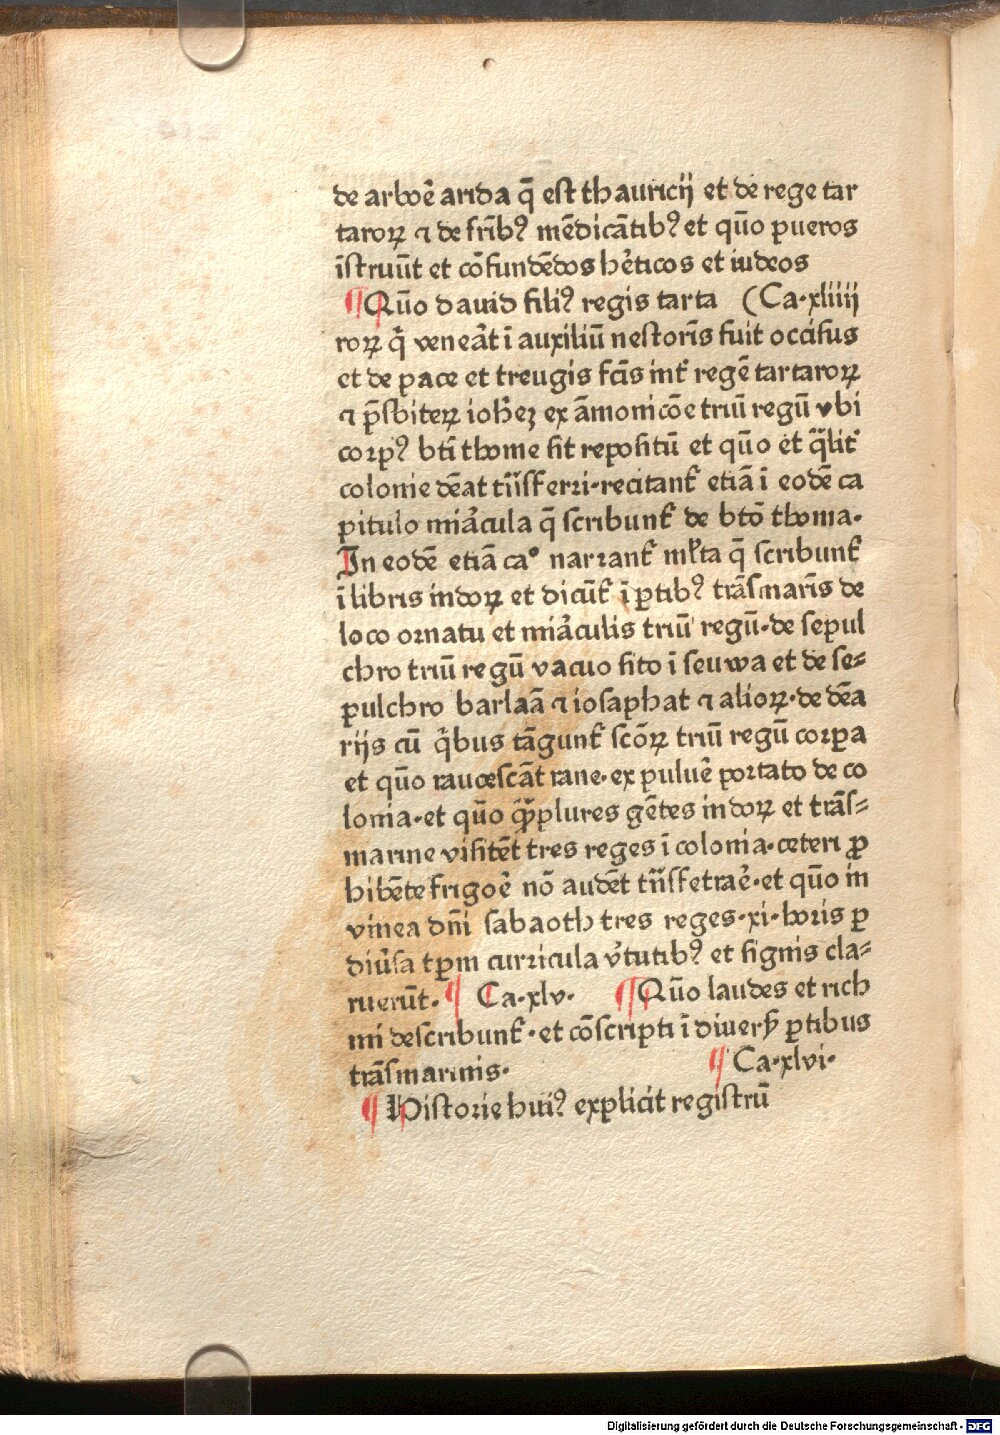 de arboꝛē arida q̄ est thauricij et de rege tar
taroꝝ ⁊ de frib⁹ mēdicātib⁹ et quō pueros
īstruūt et cōfundēdos hēticos et iudeos
¶ Quō dauid fili⁹ regis tarta (Ca·xliiij
roꝝ q̇ veneāt ī auxiliū nestoris fuit occisus
et de pace et treugis fcīs int̄ regē tartaroꝝ
⁊ p̄sbiteꝝ iohēꝫ ex āmonicōe triū regū vbi
corp⁹ bti thome sit repositū et quō et q̄lit̄
colonie dēat trīsferri·recitant̄ etiā ī eodē ca
pitulo miācula q̄ scribunt̄ de btō thoma·
In eodē etiā ca° narrant̄ mlta q̄ scribunt̄
ī libris indoꝝ et dicūt̄ ī ꝑtib⁹ trāsmarīs de
loco ornatu et miāculis triū regū·de sepul
chro triū regū vacuo sito ī seuwa et de se⸗
pulchro barlaā ⁊ iosaphat ⁊ alioꝝ·de dēa
rijs cū q̇bus tāgunt̄ scōꝝ triū regū corpa
et quō raucescāt rane·ex puluē portato de co
lonia·et quō q̄ꝑplures gētes indoꝝ et trās⸗
marine visitēt tres reges ī colonia·ceteri ꝓ
hibēte frigoē nō audēt trīsfetraē·et quō in
vinea dn̄i sabaoth tres reges·xi·horis ꝑ
diūsa tꝑm curricula v̄tutib⁹ et signis cla⸗
ruerūt· ¶ Ca·xlv· ¶ Quō laudes et rich
mi describunt̄·et cōscripti ī diuersꝭ ꝑtibus
trāsmarinis· ¶ Ca·xlvi·
¶ Historie hui⁹ explicit registrū
Digitalisierung gefördert durch die Deutsche Forschungsgemeinschaft - DFG